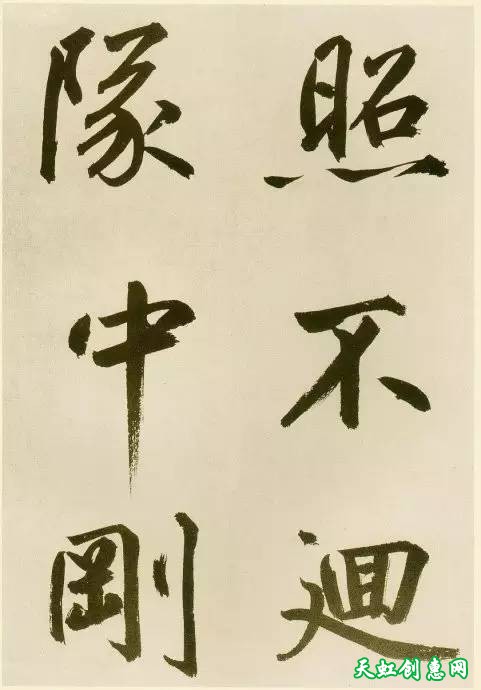 照不迴
隊中剛
天虹创惠网